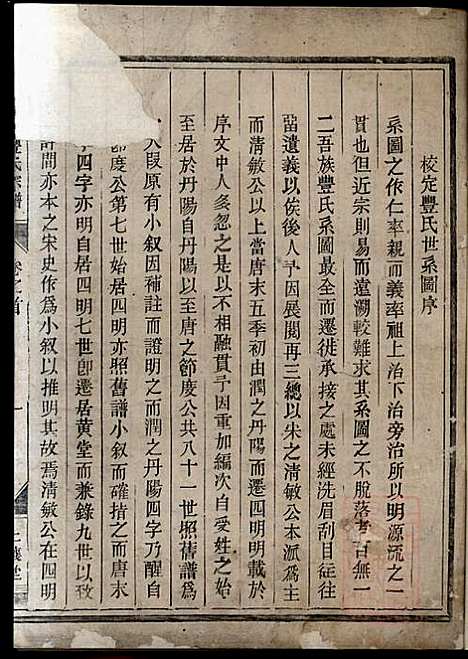 校定豐氏世系圖序
系圖之作仁率親而義率祖上治下治旁治所以明源流之一
貫也但近宗則易而遠溯較難求其系圖之不脫落者百無一
二吾族豐氏系圖最全而遷徙承接之處未經洗眉刮目茲往
留遺義以俟後人予因展閱再三總以朱之清敏公本派為主
而清敏公以上當唐末五季初由潤之丹陽而遷四明明載於
序文中人多忽之是以不相融貫予因重加編次自受姓之始
至居於丹陽自丹陽以至唐之節度公共八十一世照舊譜為
大段原有小叙因補註而證明之而潤之丹陽四字乃醒自
節度公第七世始居四明亦照舊譜小叙而確指之唐末
四字亦明自居四明七世即遷居黃堂而兼錄九世以致
計間亦本之宋史作為小叙以推明其故焉清敏公在四明
豐氏宗譜
卷之首
一
堂